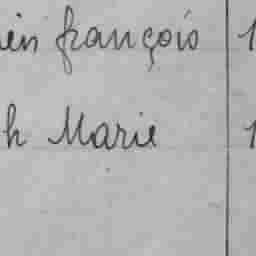 ien françois 1
h Marie 1